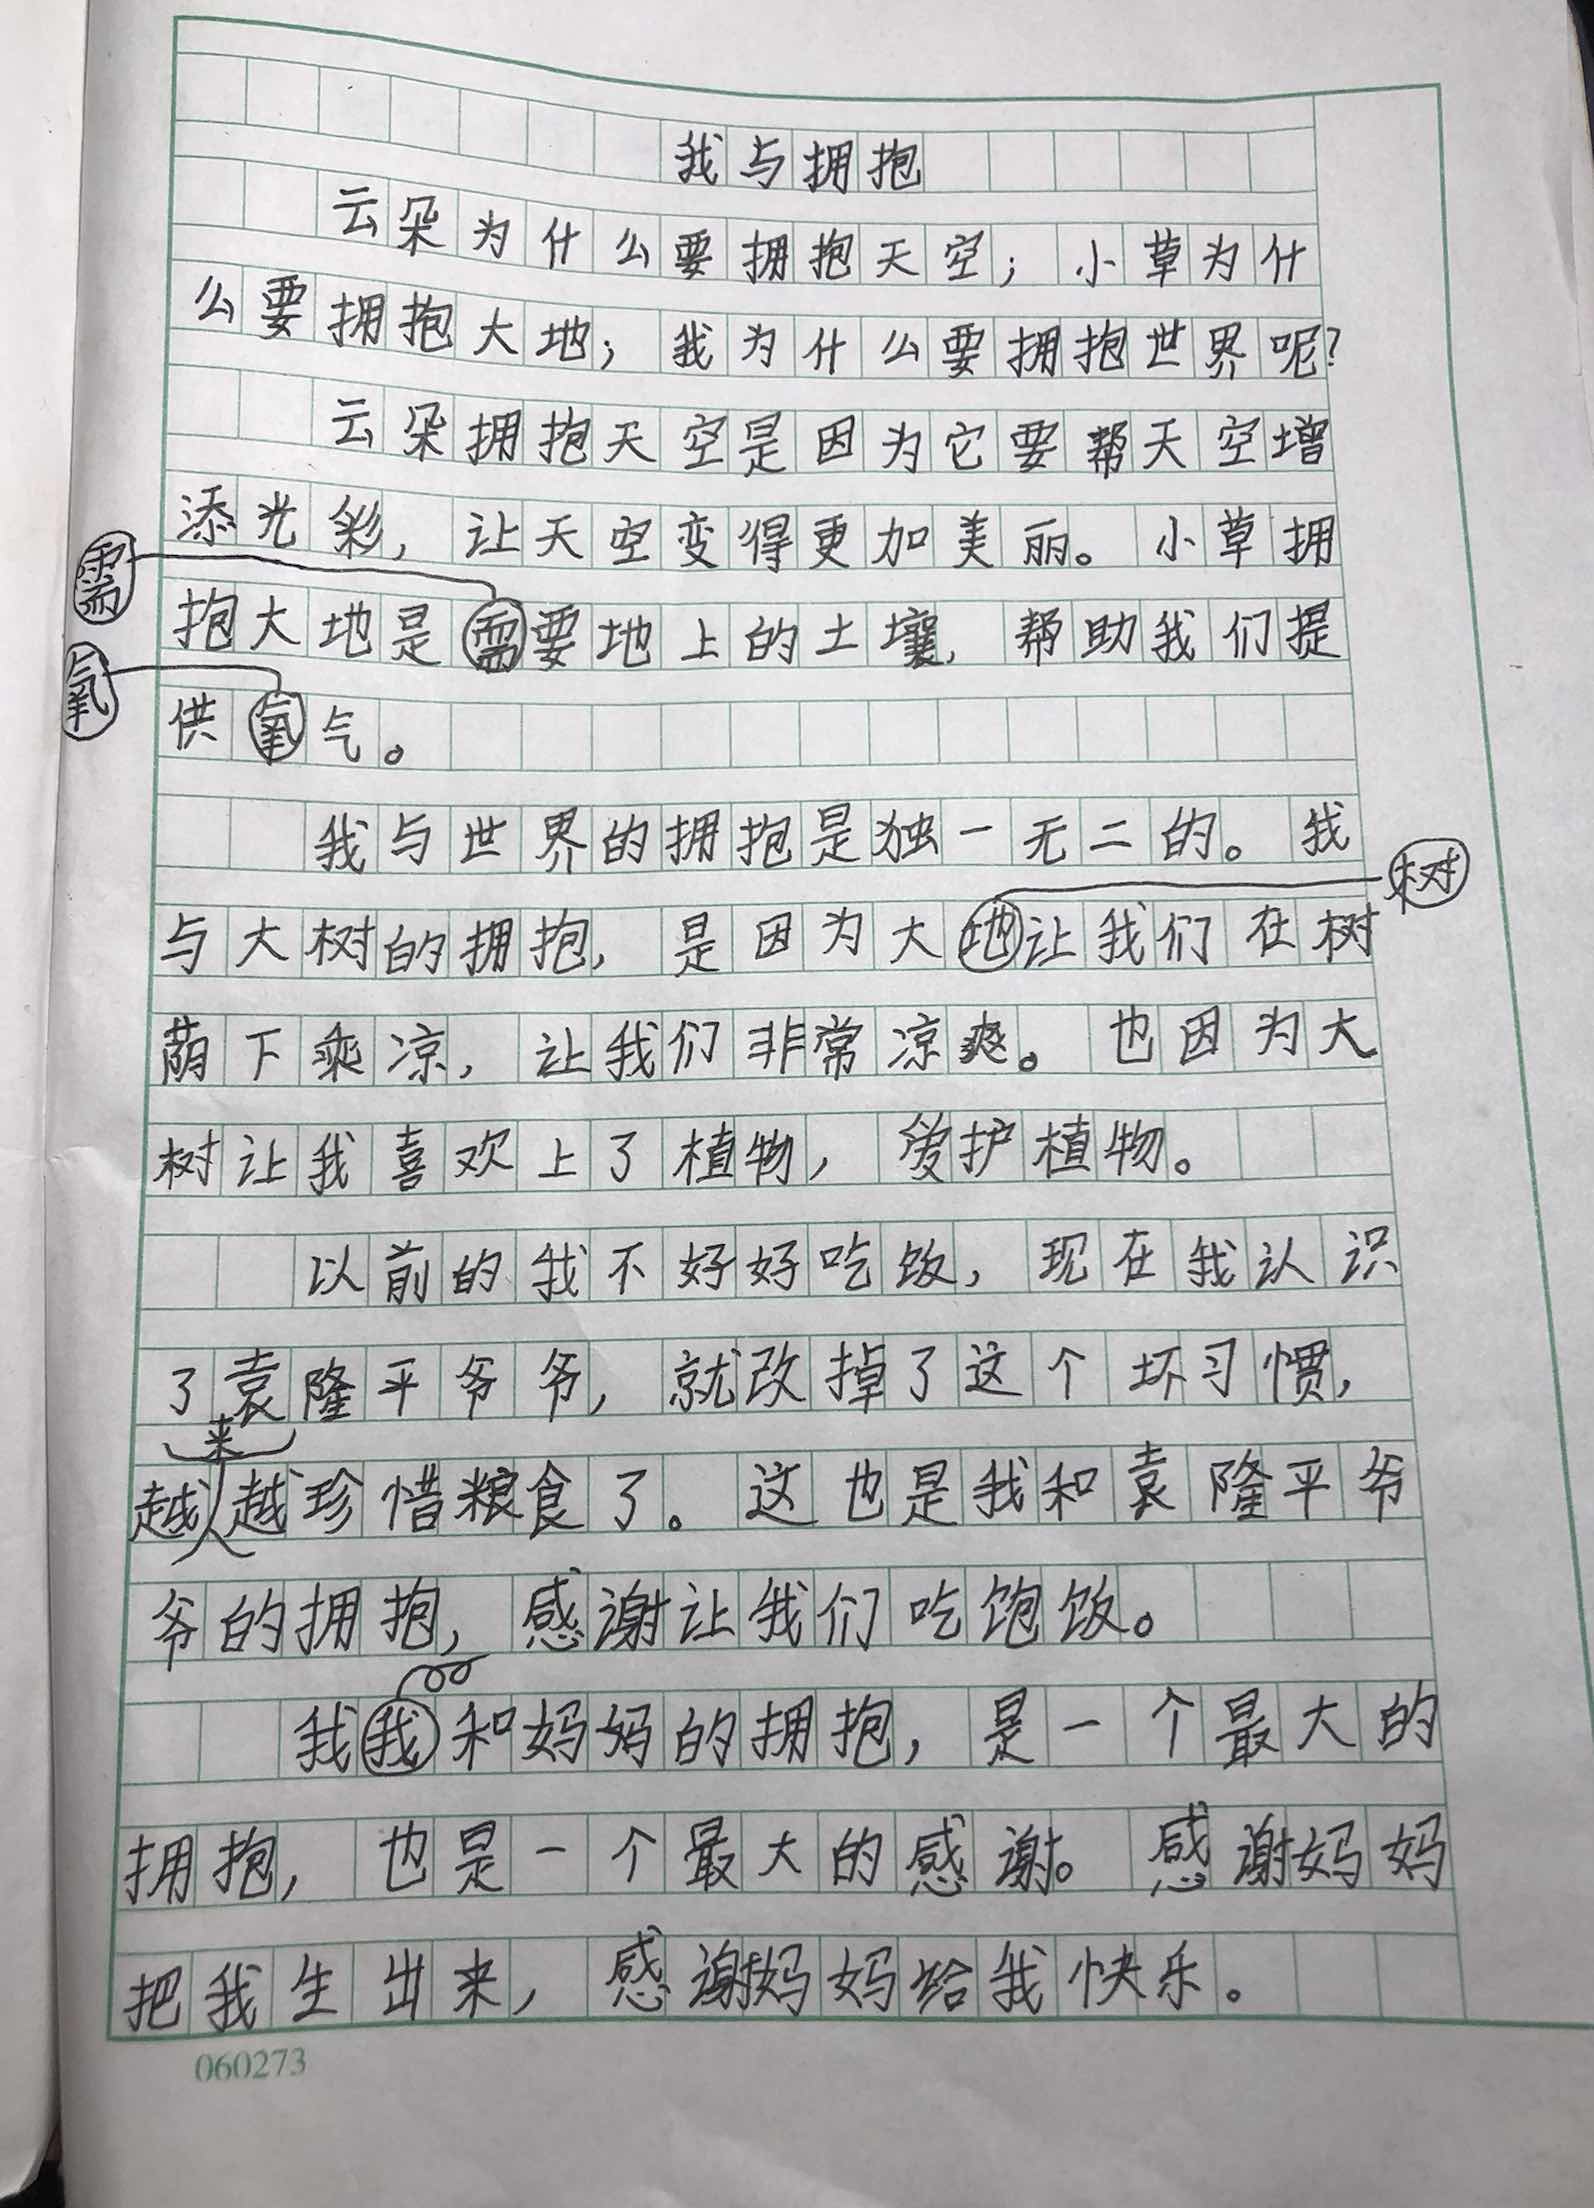 我与拥抱
云朵为什么要拥抱天空；小草为什
么要拥抱大地；我为什么要拥抱世界呢？
云朵拥抱天空是因为它要帮天空增
添光彩，让天空变得更加美丽。小草拥
需
抱大地是需要地上的土壤，帮助我们提
氧
供氧气。
我与世界的拥抱是独一无二的。我
树
与大树的拥抱，是因为大地让我们在树
荫下乘凉，让我们非常凉爽。也因为大
树让我喜欢上了植物，爱护植物。
以前的我不好好吃饭，现在我认识
了袁隆平爷爷，就改掉了这个坏习惯，
来
越越珍惜粮食了。这也是我和袁隆平爷
爷的拥抱，感谢让我们吃饱饭。
我我和妈妈的拥抱，是一个最大的
拥抱，也是一个最大的感谢。感谢妈妈
把我生出来，感谢妈妈给我快乐。
060273